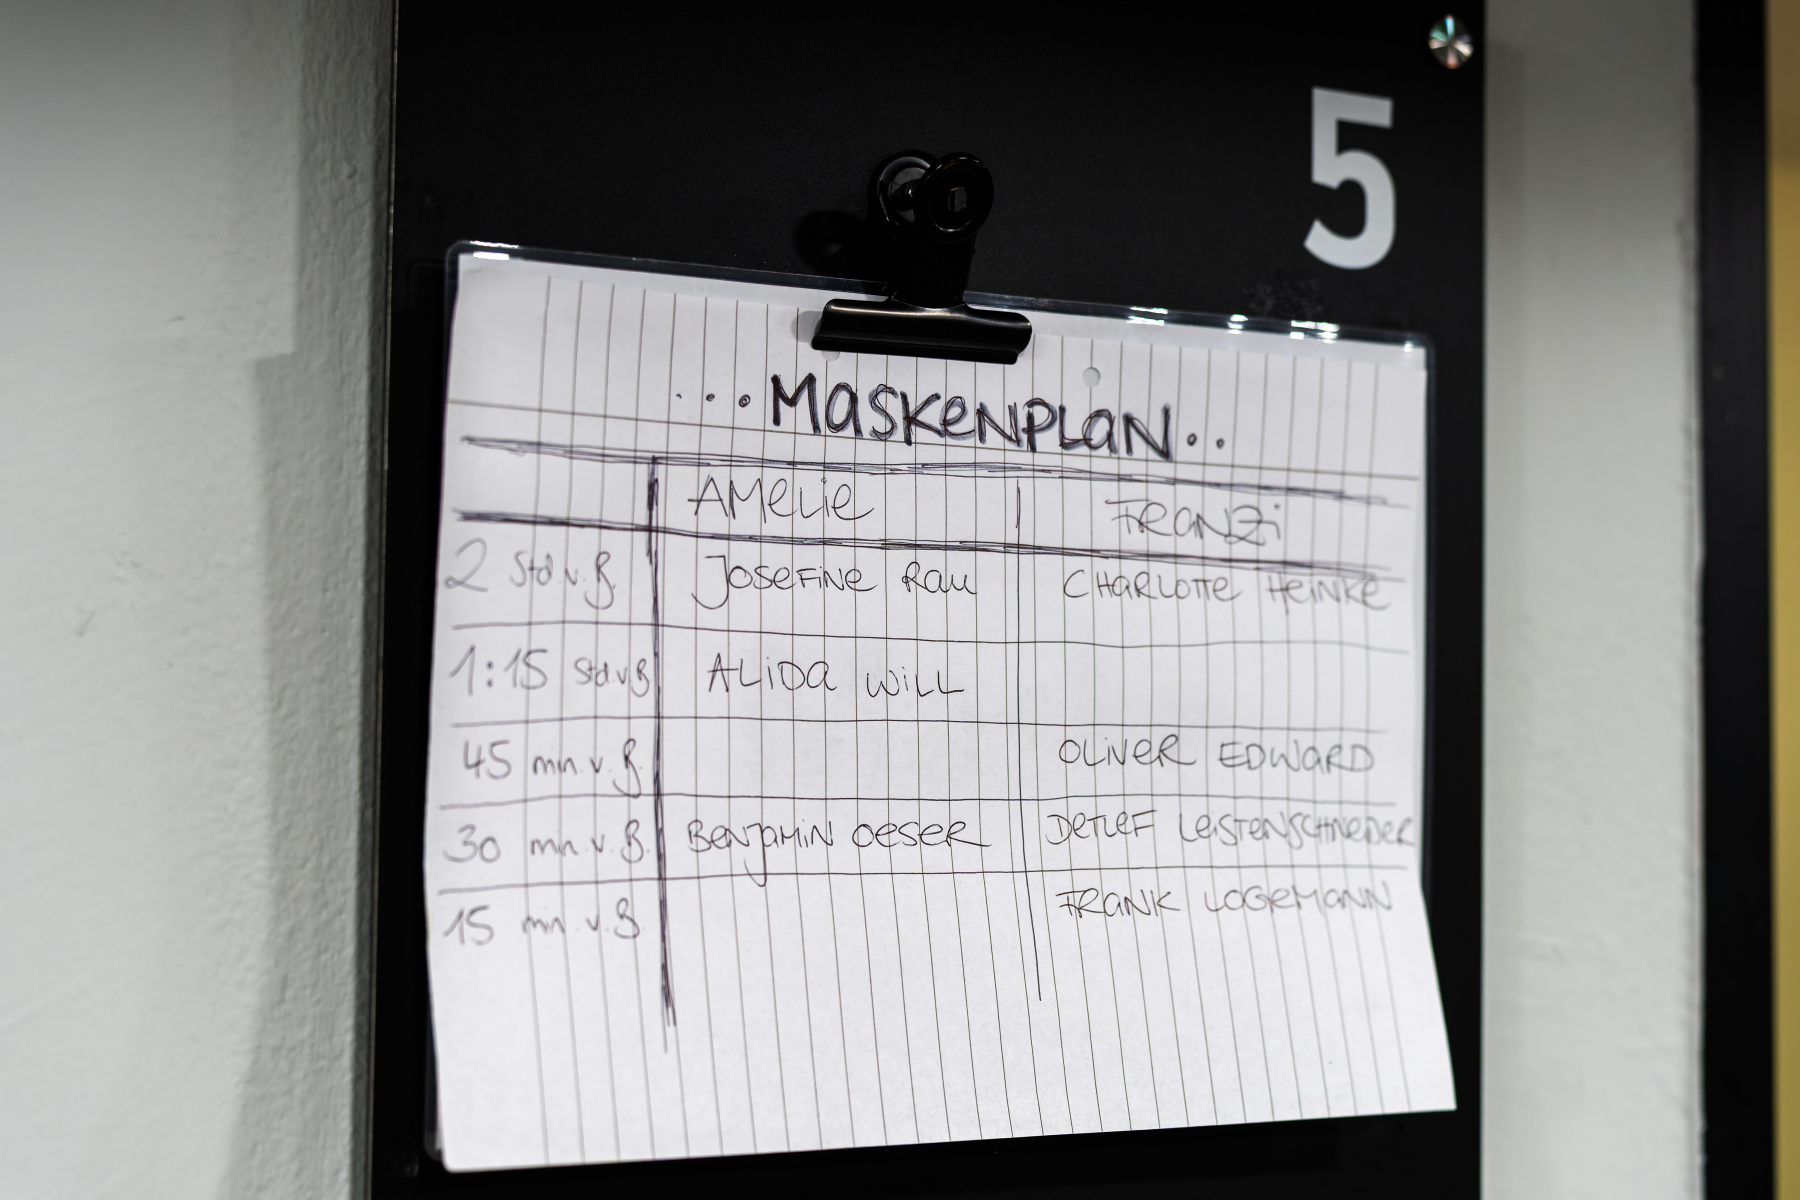 5
....MASKENPLAN..
AMELIE FRANZI
2 Std. v. B. JOSEFINE RAU CHARLOTTE HEINKE
1:15 Std. v. B ALIDA WILL
45 min. v. B. OLIVER EDWARD
30 min. v. B. BENJAMIN OESER DETLEF LEISTENSCHNEIDER
15 min. v. B. FRANK LOGEMANN